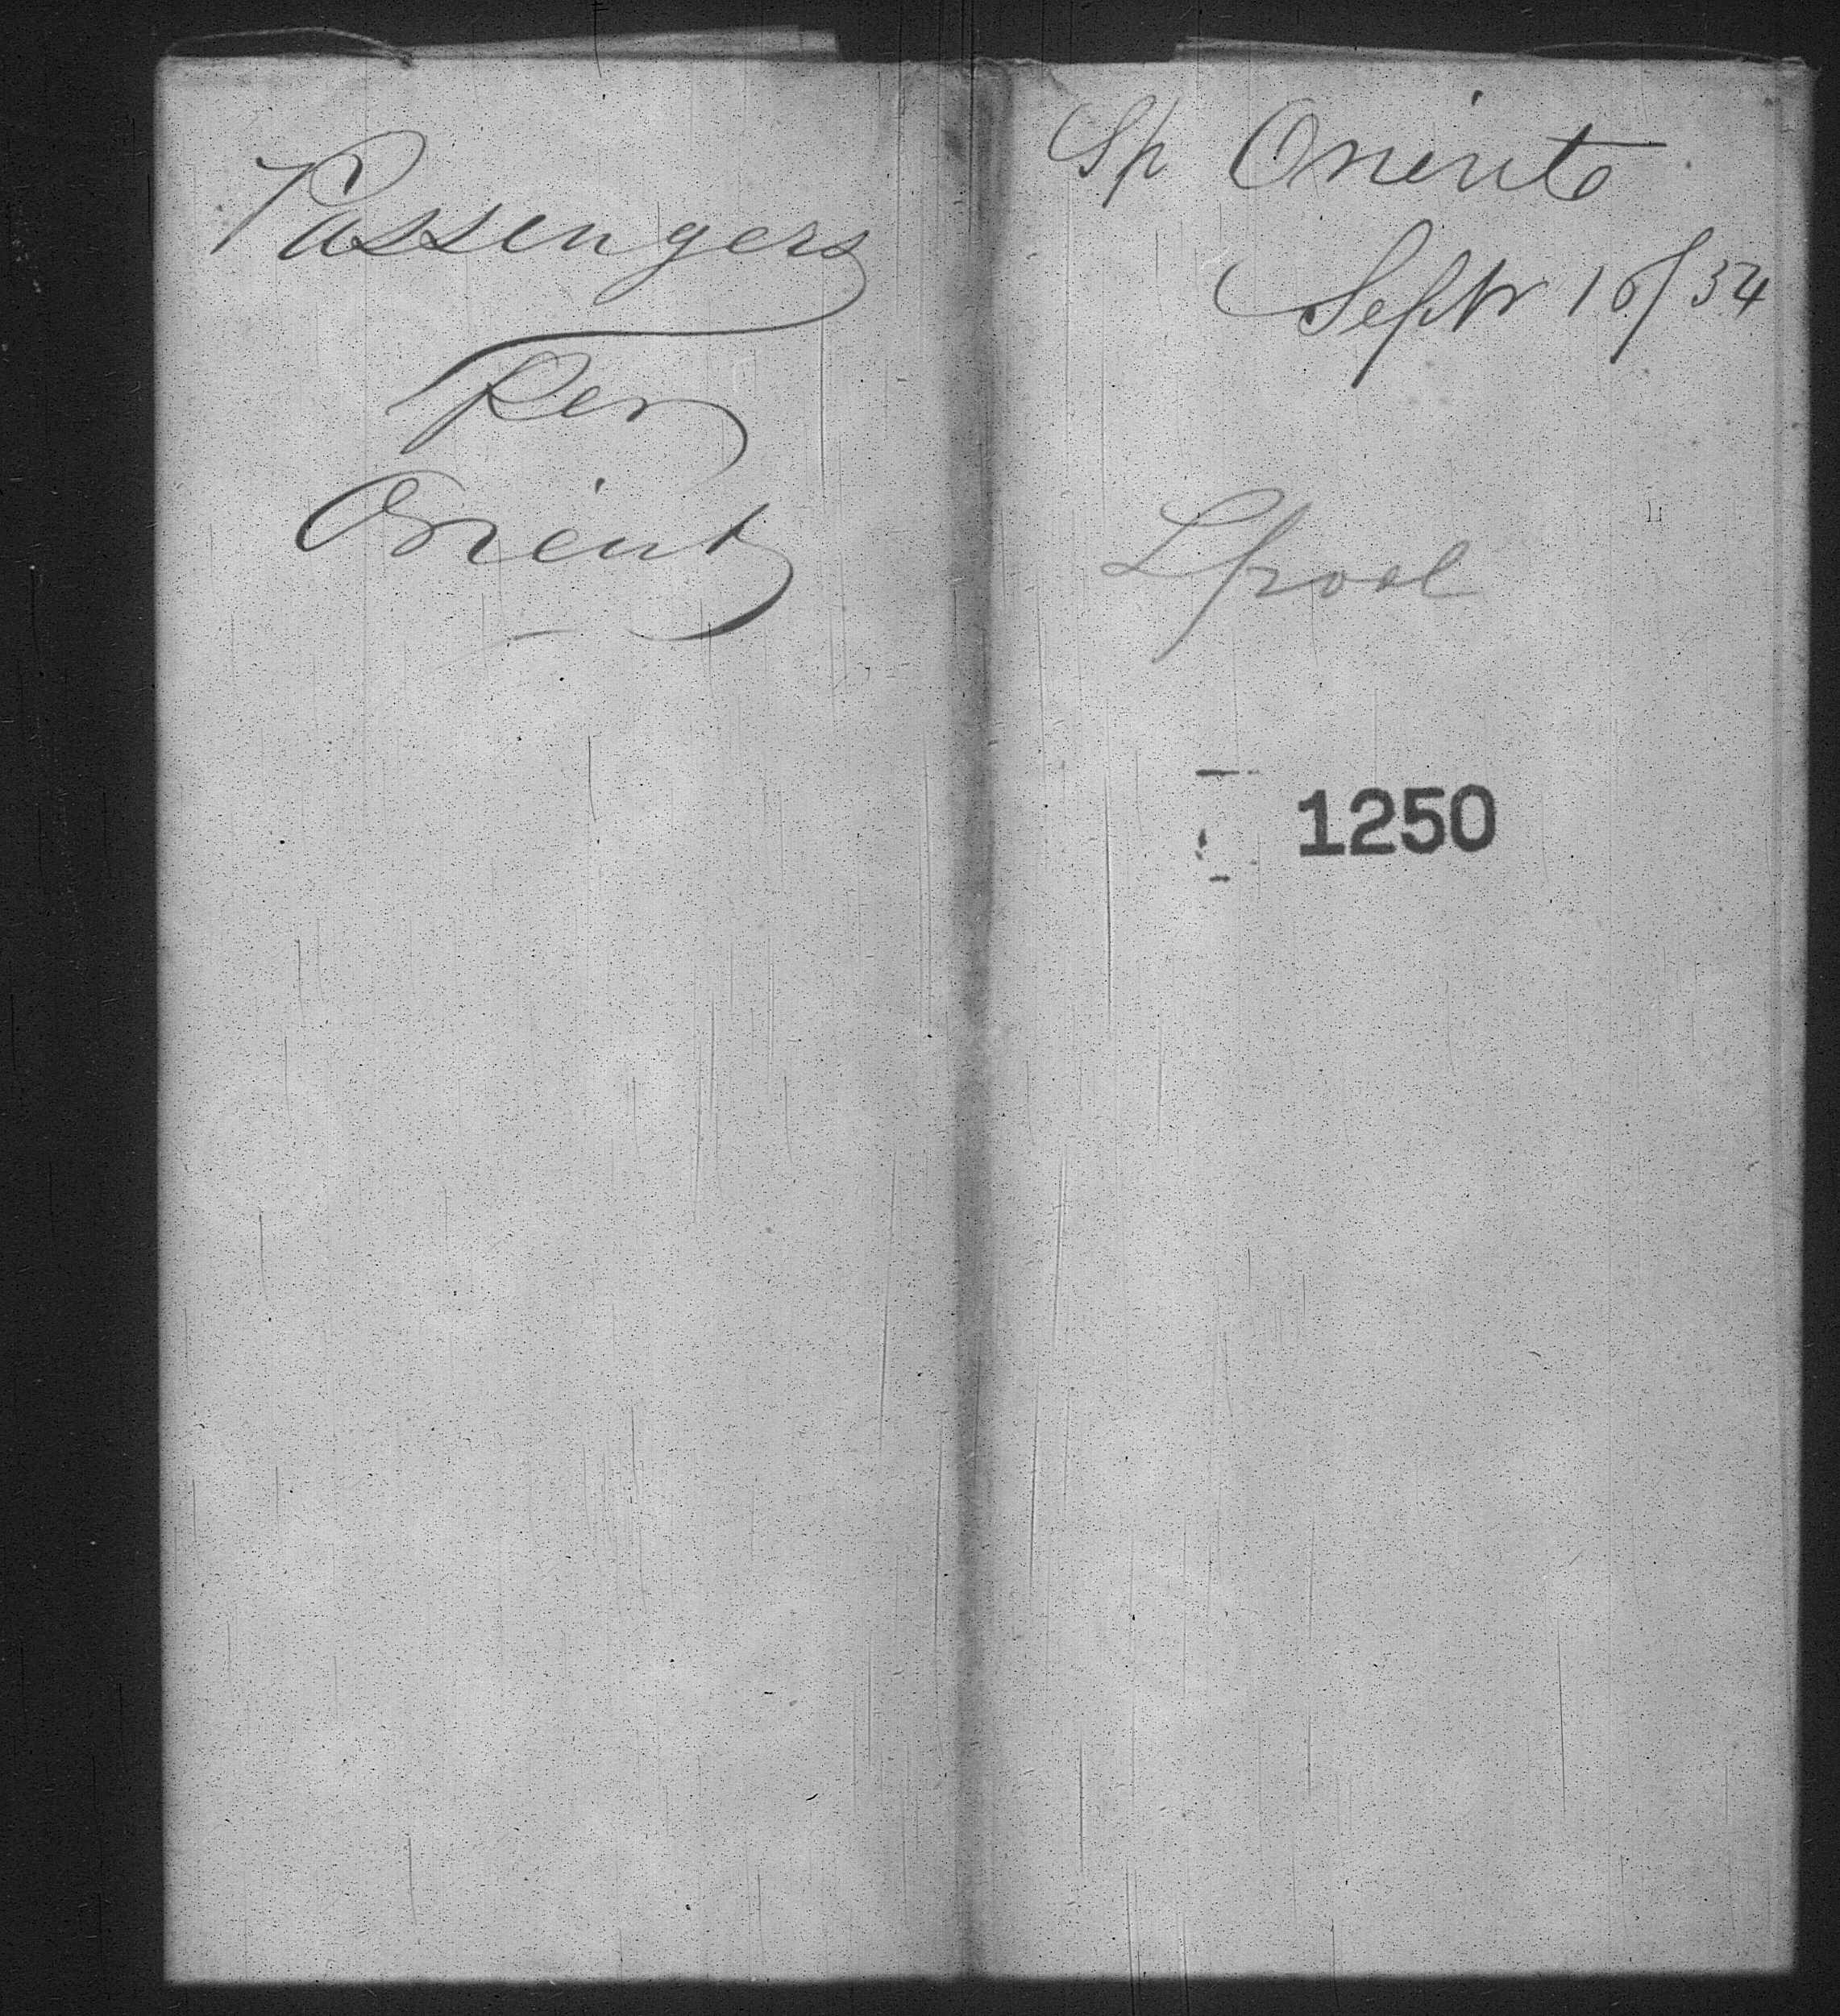 Passengers
Per
Orient
Sp Orient
Septr 16/54
Lpool
1250